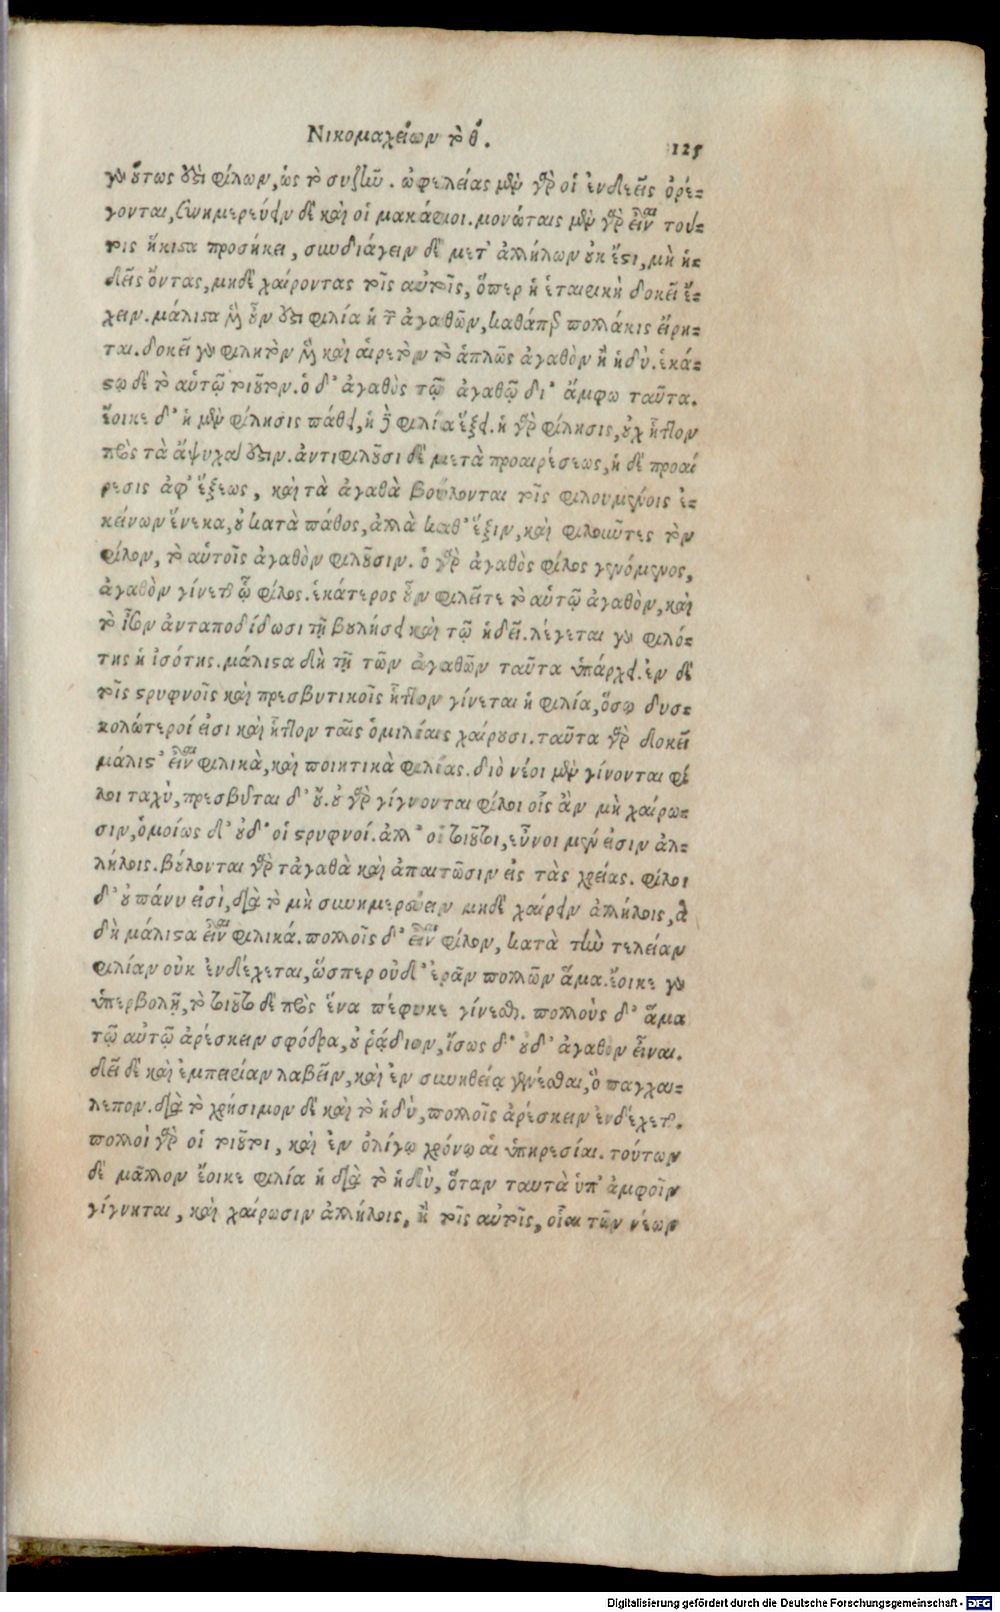 Νικομαχείων τὸ θ.
125
γὰρ οὕτως ἐστὶ φίλων, ὡς τὸ συζῆν. ὠφελείας μὲν γὰρ οἱ ἐνδεεῖς ὀρέ-
γονται, συνημερεύειν δὲ καὶ οἱ μακάριοι. μονώταις μὲν γὰρ εἶναι τού-
τοις ἥκιστα προσήκει, συνδιάγειν δὲ μετ' ἀλλήλων οὐκ ἔστι, μὴ ἡ-
δεῖς ὄντας, μηδὲ χαίροντας τοῖς αὐτοῖς, ὅπερ ἡ ἑταιρικὴ δοκεῖ ἔ-
χειν. μάλιστα μὲν οὖν ἐστὶ φιλία ἡ τῶν ἀγαθῶν, καθάπερ πολλάκις εἴρη-
ται. δοκεῖ γὰρ φιλητὸν μὲν καὶ αἱρετὸν τὸ ἁπλῶς ἀγαθὸν ἢ ἡδύ. ἑκά-
στῳ δὲ τὸ αὑτῷ τοιοῦτον. ὁ δ' ἀγαθὸς τῷ ἀγαθῷ δι' ἄμφω ταῦτα.
ἔοικε δ' ἡ μὲν φίλησις πάθει, ἡ δὲ φιλία ἕξει. ἡ γὰρ φίλησις, οὐχ ἧττον
πρὸς τὰ ἄψυχά ἐστιν. ἀντιφιλοῦσι δὲ μετὰ προαιρέσεως, ἡ δὲ προαί
ρεσις ἀφ' ἕξεως, καὶ τὰ ἀγαθὰ βούλονται τοῖς φιλουμένοις ἐ-
κείνων ἕνεκα, οὐ κατὰ πάθος, ἀλλὰ καθ' ἕξιν, καὶ φιλοῦντες τὸν
φίλον, τὸ αὑτοῖς ἀγαθὸν φιλοῦσιν. ὁ γὰρ ἀγαθὸς φίλος γενόμενος,
ἀγαθὸν γίνεται ᾧ φίλος. ἑκάτερος οὖν φιλεῖ τε τὸ αὑτῷ ἀγαθὸν, καὶ
τὸ ἶσον ἀνταποδίδωσι τῇ βουλήσει καὶ τῷ ἡδεῖ. λέγεται γὰρ φιλό-
της ἡ ἰσότης. μάλιστα δὴ τῇ τῶν ἀγαθῶν ταῦτα ὑπάρχει. ἐν δὲ
τοῖς στρυφνοῖς καὶ πρεσβυτικοῖς ἧττον γίνεται ἡ φιλία, ὅσῳ δυσ-
κολώτεροί εἰσι καὶ ἧττον ταῖς ὁμιλίαις χαίρουσι. ταῦτα γὰρ δοκεῖ
μάλιστ' εἶναι φιλικὰ, καὶ ποιητικὰ φιλίας. διὸ νέοι μὲν γίνονται φί
λοι ταχὺ, πρεσβῦται δ' οὔ. οὐ γὰρ γίγνονται φίλοι οἷς ἂν μὴ χαίρω-
σιν, ὁμοίως δ' οὐδ' οἱ στρυφνοί. ἀλλ' οἱ τοιοῦτοι, εὖνοι μέν εἰσιν ἀλ-
λήλοις. βούλονται γὰρ τἀγαθὰ καὶ ἀπαντῶσιν εἰς τὰς χρείας. φίλοι
δ' οὐ πάνυ εἰσὶ, διὰ τὸ μὴ συνημερεύειν μηδὲ χαίρειν ἀλλήλοις, ἃ
δὴ μάλιστα εἶναι φιλικά. πολλοῖς δ' εἶναι φίλον, κατὰ τὴν τελείαν
φιλίαν οὐκ ἐνδέχεται, ὥσπερ οὐδ' ἐρᾶν πολλῶν ἅμα. ἔοικε γὰρ
ὑπερβολῇ, τὸ τοιοῦτο δὲ πρὸς ἕνα πέφυκε γίνεσθαι. πολλοὺς δ' ἅμα
τῷ αὐτῷ ἀρέσκειν σφόδρα, οὐ ῥᾴδιον, ἴσως δ' οὐδ' ἀγαθὸν εἶναι.
δεῖ δὲ καὶ ἐμπειρίαν λαβεῖν, καὶ ἐν συνηθείᾳ γενέσθαι, ὃ παγχά-
λεπον. διὰ τὸ χρήσιμον δὲ καὶ τὸ ἡδὺ, πολλοῖς ἀρέσκειν ἐνδέχεται.
πολλοὶ γὰρ οἱ τοιοῦτοι, καὶ ἐν ὀλίγῳ χρόνῳ αἱ ὑπηρεσίαι. τούτων
δὲ μᾶλλον ἔοικε φιλία ἡ διὰ τὸ ἡδὺ, ὅταν ταυτὰ ὑπ' ἀμφοῖν
γίγνηται, καὶ χαίρωσιν ἀλλήλοις, ἢ τοῖς αὐτοῖς, οἷαι τῶν νέων
Digitalisierung gefördert durch die Deutsche Forschungsgemeinschaft - DFG